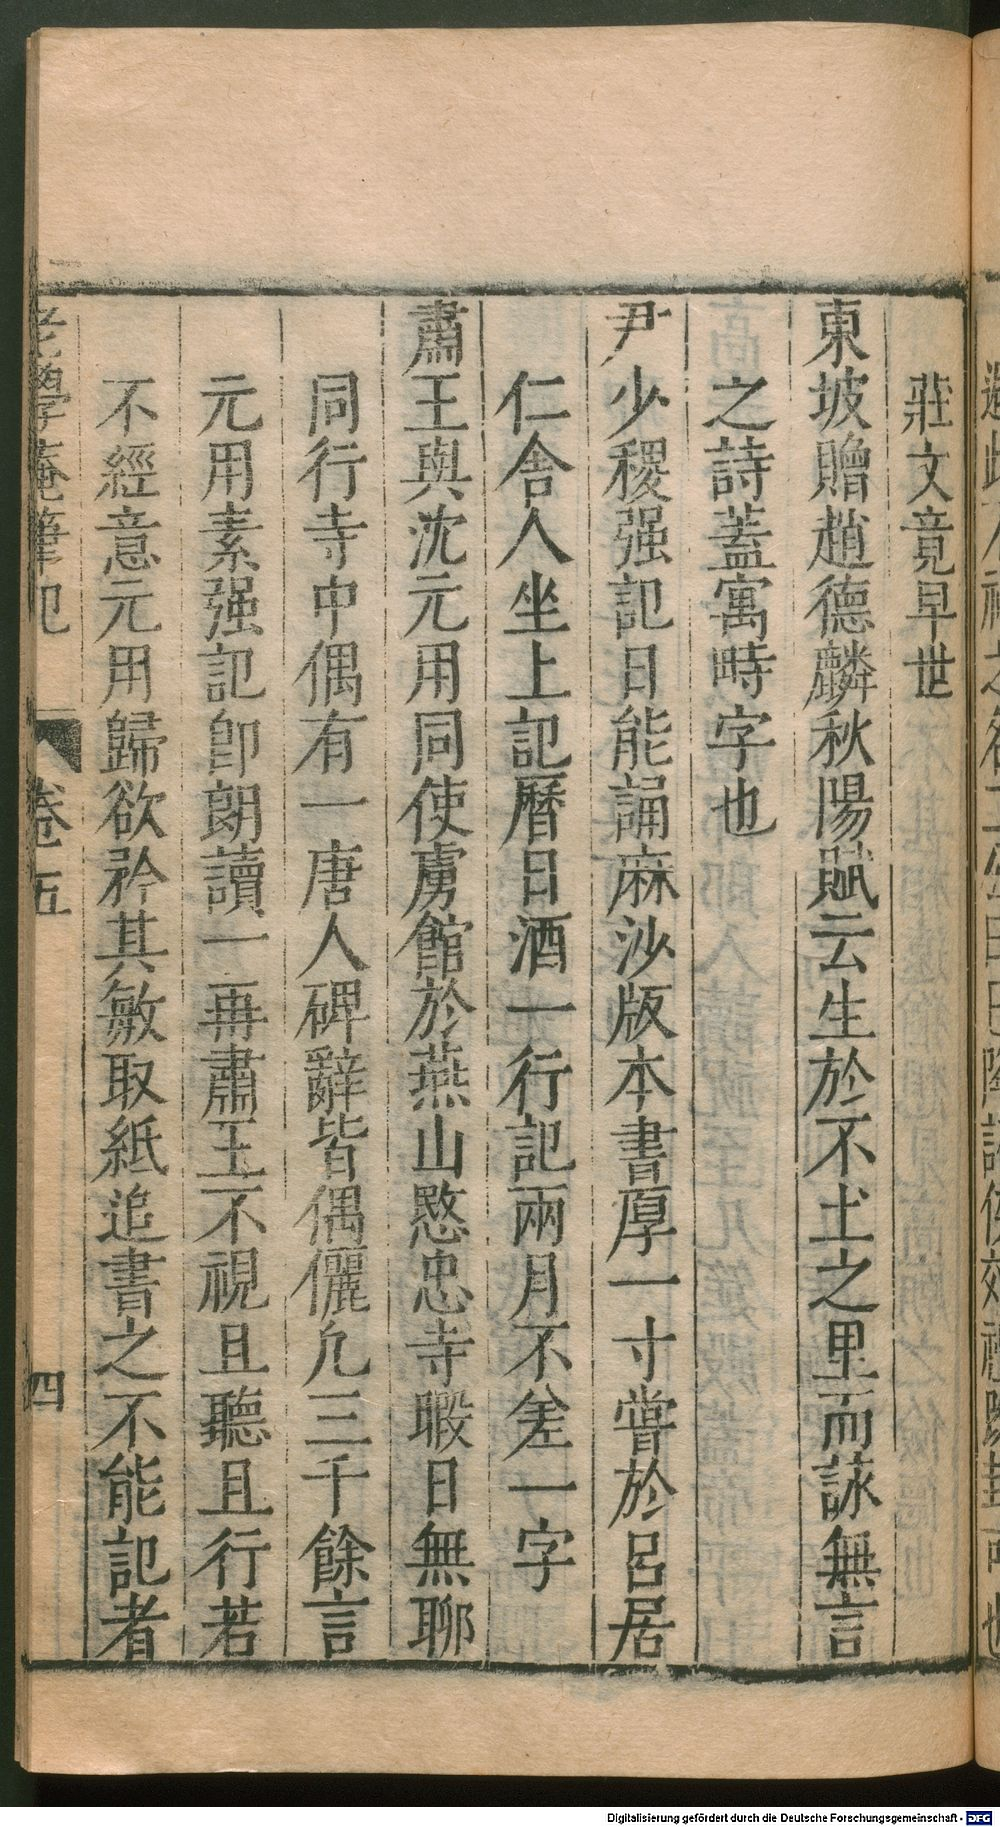 莊文竟早世
東坡贈趙德麟秋陽賦云生於不土之里而詠無言
之詩蓋寓畤字也
尹少稷强記日能誦麻沙版本書厚一寸嘗於呂居
仁舍人坐上記曆日酒一行記兩月不差一字
肅王與沈元用同使虜館於燕山愍忠寺暇日無聊
同行寺中偶有一唐人碑辭皆偶儷凢三千餘言
元用素强記卽朗讀一再肅王不視且聽且行若
不經意元用歸欲矜其敏取紙追書之不能記者
老學菴筆記 卷五 四
Digitalisierung gefördert durch die Deutsche Forschungsgemeinschaft - DFG